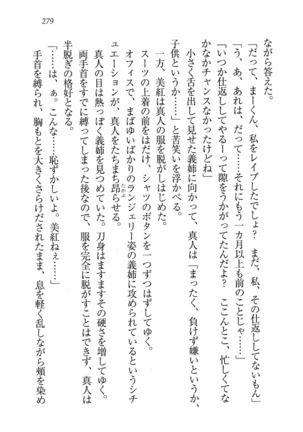 279
ながら答えた。
「だって、まーくん、私をレイプしたでしょ？　まだ、私、その仕返ししてないもん」
「う、あ、あれは、だって……それにもう一カ月以上も前のことじゃ……」
「いつか仕返ししてやるーって隙をうかがってたんだよ？　ここんとこ、忙しくてな
かなかチャンスなかったけどね」
小さく舌を出して見せた義姉に向かって、真人は「まったく、負けず嫌いというか、
子供というか……」と苦笑いを浮かべる。
一方、美紅は真人の服を脱がしはじめた。
スーツの上着の前をはだけ、シャツのボタンを一つずつはずしてゆく。
オフィスで、まばゆいばかりのランジェリー姿の義姉に攻められているというシチ
ュエーションが、真人をたちまち昂らせる。
真人の目は熱っぽく義姉を見つめていた。刀身はますますその硬さを増してゆく。
両手首をすでに縛ってしまった後なので、服を完全に脱がすことはできず、真人は
半脱ぎの格好となる。
「……は、ぁ。こんな……恥ずかしいよ。美紅ねぇ……」
手首を縛られ、胸もとを大きくさらけだされたまま、息を軽く乱しながら頬を染め